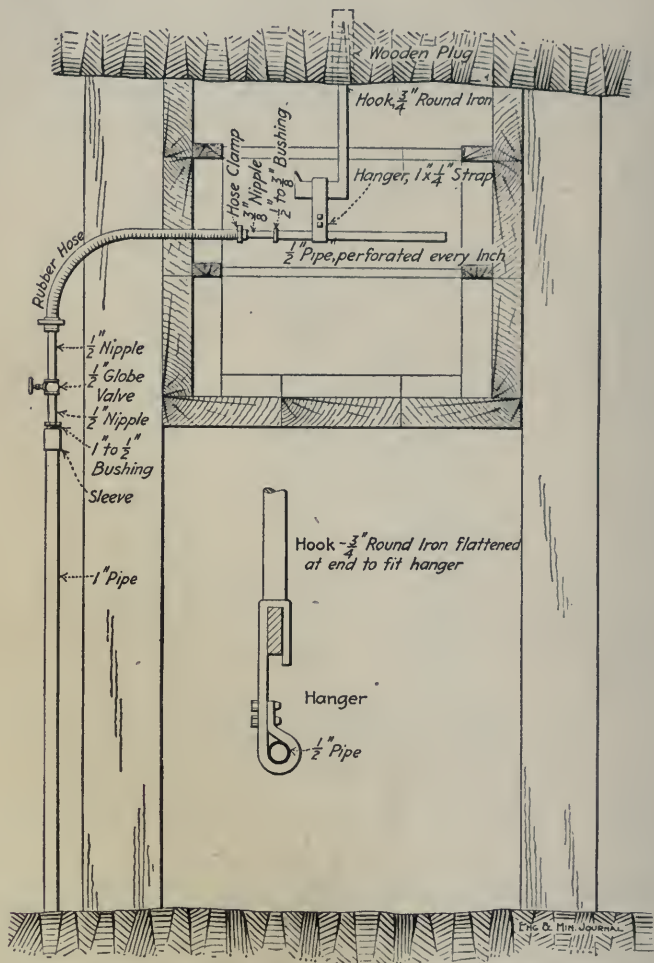 Wooden Plug
Hook, 3/4" Round Iron
Hose Clamp
3/8" Nipple
1/2" to 3/8" Bushing.
Hanger, 1"x 1/4" Strap
Rubber Hose
1/2" Pipe, perforated every Inch
1/2" Nipple
1/2" Globe
Valve
1/2" Nipple
1" to 1/2"
Bushing
Sleeve
Hook - 3/4" Round Iron flattened
at end to fit hanger
1" Pipe
Hanger
1/2" Pipe
ENG & MIN. JOURNAL